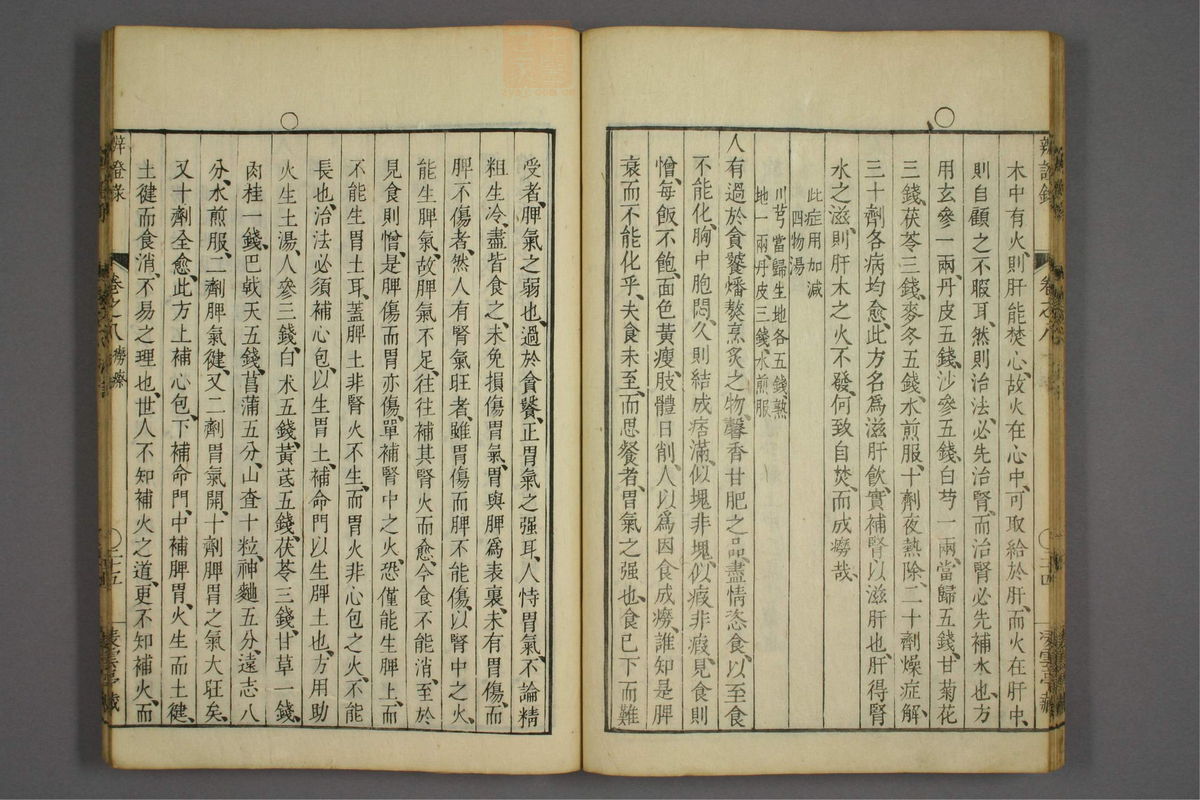 辨證錄　卷之八
木中有火、則肝能焚心、故火在心中、可取給於肝、而火在肝中、
則自顧之不暇耳、然則治法、必先治腎、而治腎必先補水也、方
用玄參一兩、丹皮五錢、沙參五錢、白芍一兩、當歸五錢、甘菊花
三錢、茯苓三錢、麥冬五錢、水煎服、十劑夜熱除、二十劑燥症解、
三十劑各病均愈、此方名爲滋肝飲、實補腎以滋肝也、肝得腎
水之滋、則肝木之火不發、何致自焚、而成癆哉、
此症用加減
四物湯
川芎當歸生地各五錢、熟
地一兩、丹皮三錢、水煎服
人有過於貪饕、燔熬烹炙之物、馨香甘肥之品、盡情恣食、以至食
不能化、胸中胞悶、久則結成痞滿、似塊非塊、似瘕非瘕、見食則
憎、每飯不飽、面色黃瘦、肢體日削、人以爲因食成癆、誰知是脾
衰而不能化乎、夫食未至、而思餐者、胃氣之强也、食已下而難
受者、脾氣之弱也、過於貪饕、正胃氣之强耳、人恃胃氣、不論精
粗生冷、盡皆食之、未免損傷胃氣、胃與脾爲表裏、未有胃傷、而
脾不傷者、然人有腎氣旺者、雖胃傷而脾不能傷、以腎中之火、
能生脾氣、故脾氣不足、往往補其腎火而愈、今食不能消、至於
見食則憎、是脾傷而胃亦傷、單補腎中之火、恐僅能生脾土、而
不能生胃土耳、蓋脾土非腎火不生、而胃火非心包之火、不能
長也、治法必須補心包、以生胃土、補命門以生脾土也、方用助
火生土湯、人參三錢、白朮五錢、黃芪五錢、茯苓三錢、甘草一錢、
肉桂一錢、巴戟天五錢、菖蒲五分、山査十粒、神麯五分、遠志八
分、水煎服、二劑脾氣健、又二劑胃氣開、十劑脾胃之氣大旺矣、
又十劑全愈、此方上補心包、下補命門、中補脾胃、火生而土健、
土健而食消、不易之理也、世人不知補火之道、更不知補火、而
辨證錄　卷之八　癆瘵